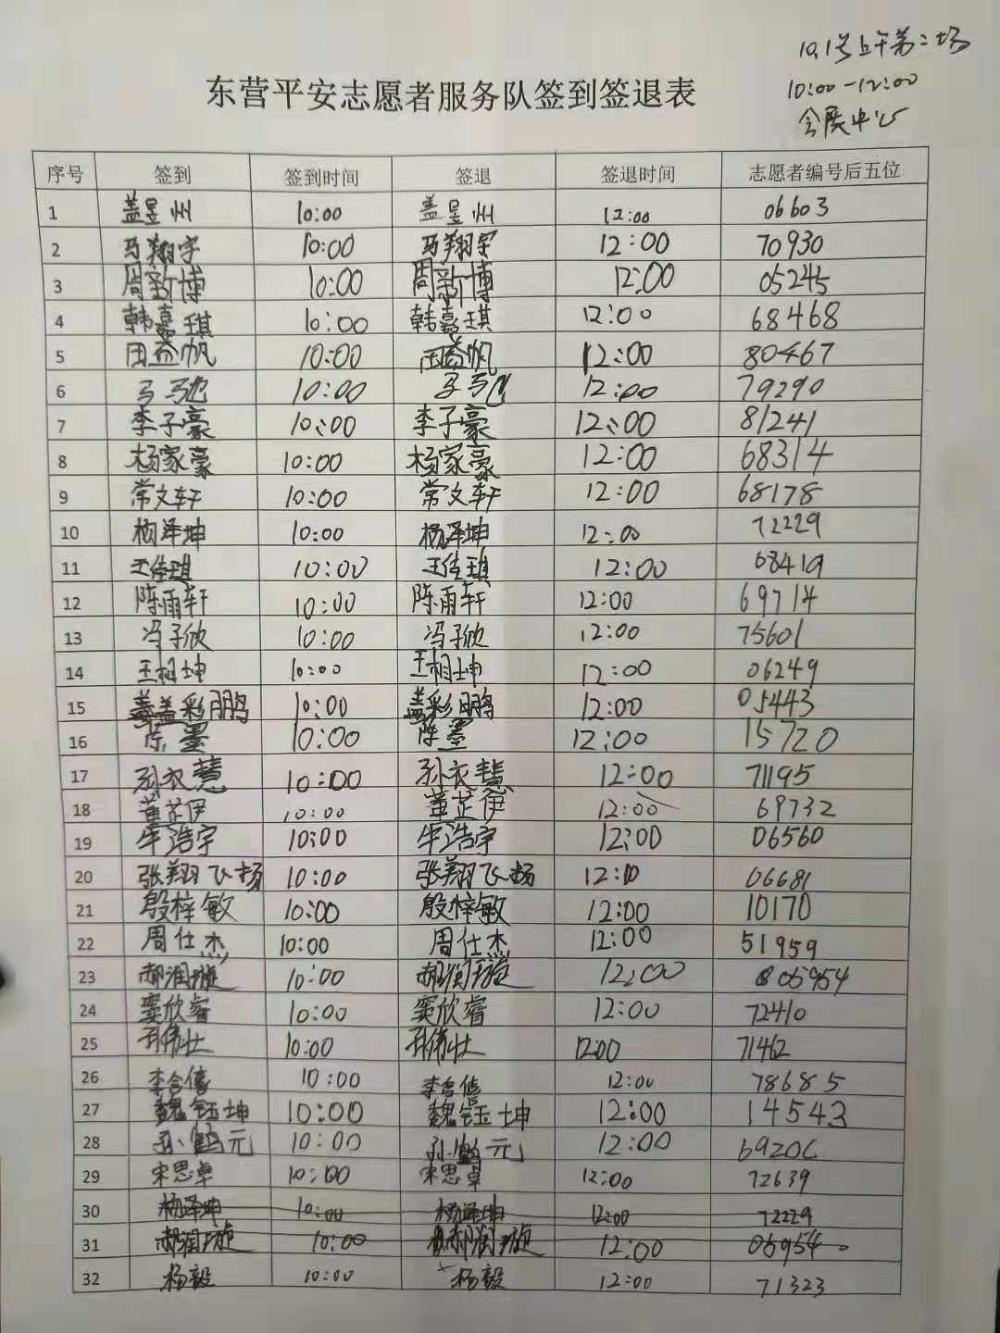 10.1号上午第二场
10:00-12:00
会展中心
东营平安志愿者服务队签到签退表
序号 签到 签到时间 签退 签退时间 志愿者编号后五位
1 盖昱州 10:00 盖昱州 12:00 06603
2 马翔宇 10:00 马翔宇 12:00 70930
3 周新博 10:00 周新博 12:00 05245
4 韩嘉琪 10:00 韩嘉琪 12:00 68468
5 田益帆 10:00 田益帆 12:00 80467
6 马驰 10:00 马驰 12:00 79290
7 李子豪 10:00 李子豪 12:00 81241
8 杨家豪 10:00 杨家豪 12:00 68314
9 常文轩 10:00 常文轩 12:00 68178
10 杨泽坤 10:00 杨泽坤 12:00 72229
11 王佳琪 10:00 王佳琪 12:00 68419
12 陈雨轩 10:00 陈雨轩 12:00 69714
13 冯子欣 10:00 冯子欣 12:00 75601
14 王相坤 10:00 王相坤 12:00 06249
15 盖彩鹏 10:00 盖彩鹏 12:00 05443
16 陈墨 10:00 陈墨 12:00 15720
17 孙衣慧 10:00 孙衣慧 12:00 71195
18 董芷伊 10:00 董芷伊 12:00 69732
19 牛浩宇 10:00 牛浩宇 12:00 06560
20 张翔飞扬 10:00 张翔飞扬 12:10 06681
21 殷梓敏 10:00 殷梓敏 12:00 10170
22 周仕杰 10:00 周仕杰 12:00 51959
23 郝润璇 10:00 郝润璇 12:00 05954
24 窦欣睿 10:00 窦欣睿 12:00 72410
25 孙伟壮 10:00 孙伟壮 12:00 71462
26 李含僖 10:00 李含僖 12:00 78685
27 魏钰坤 10:00 魏钰坤 12:00 14543
28 10:00 12:00 69206
29 宋思卓 10:00 宋思卓 12:00 72639
30 杨泽坤 10:00 杨泽坤 12:00 72229
31 郝润璇 10:00 郝润璇 12:00 05954
32 杨毅 10:00 杨毅 12:00 71323